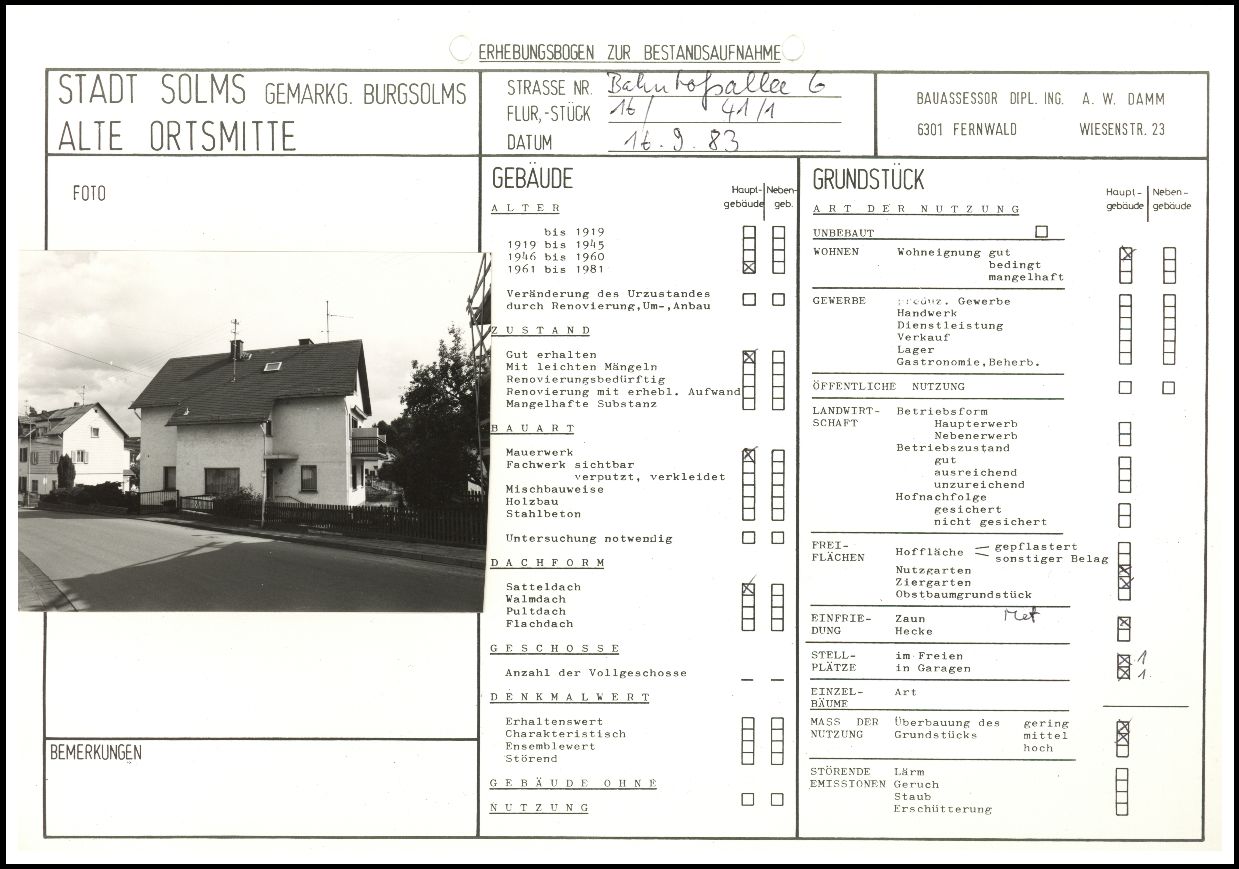 ERHEBUNGSBOGEN ZUR BESTANDSAUFNAHME
STADT SOLMS GEMARKG. BURGSOLMS
ALTE ORTSMITTE
STRASSE NR. Bahnhofsallee 6
FLUR,-STÜCK 16/ 41/1
DATUM 16.9.83
BAUASSESSOR DIPL. ING. A. W. DAMM
6301 FERNWALD WIESENSTR. 23
FOTO
BEMERKUNGEN
GEBÄUDE
Haupt- Neben-
gebäude geb.
ALTER
bis 1919
1919 bis 1945
1946 bis 1960
1961 bis 1981
Veränderung des Urzustandes
durch Renovierung,Um-,Anbau
ZUSTAND
Gut erhalten
Mit leichten Mängeln
Renovierungsbedürftig
Renovierung mit erhebl. Aufwand
Mangelhafte Substanz
BAUART
Mauerwerk
Fachwerk sichtbar
verputzt, verkleidet
Mischbauweise
Holzbau
Stahlbeton
Untersuchung notwendig
DACHFORM
Satteldach
Walmdach
Pultdach
Flachdach
GESCHOSSE
Anzahl der Vollgeschosse
DENKMALWERT
Erhaltenswert
Charakteristisch
Ensemblewert
Störend
GEBÄUDE OHNE
NUTZUNG
GRUNDSTÜCK
Haupt- Neben-
gebäude gebäude
ART DER NUTZUNG
UNBEBAUT
WOHNEN Wohneignung gut
bedingt
mangelhaft
GEWERBE Produz. Gewerbe
Handwerk
Dienstleistung
Verkauf
Lager
Gastronomie,Beherb.
ÖFFENTLICHE NUTZUNG
LANDWIRT- Betriebsform
SCHAFT Haupterwerb
Nebenerwerb
Betriebszustand
gut
ausreichend
unzureichend
Hofnachfolge
gesichert
nicht gesichert
FREI- Hoffläche gepflastert
FLÄCHEN sonstiger Belag
Nutzgarten
Ziergarten
Obstbaumgrundstück
EINFRIE- Zaun Met
DUNG Hecke
STELL- im Freien 1
PLÄTZE in Garagen 1
EINZEL- Art
BÄUME
MASS DER Überbauung des gering
NUTZUNG Grundstücks mittel
hoch
STÖRENDE Lärm
EMISSIONEN Geruch
Staub
Erschütterung